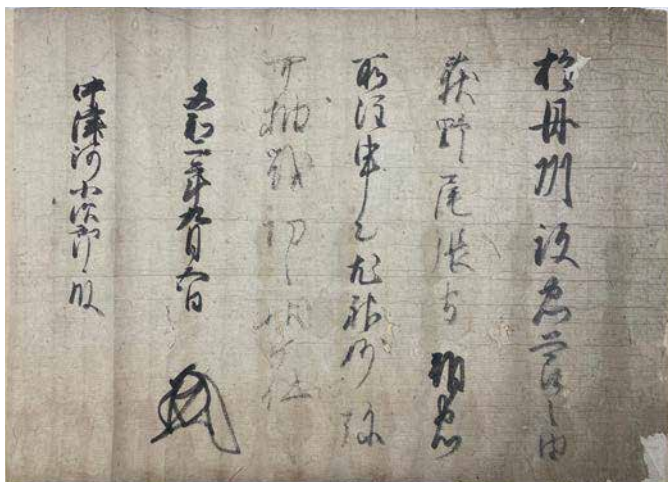 於丹州致忠節之由
荻野尾張守朝忠
所注申也尤神妙弥
可抽戦功之状如件
文和二年九月六日
中津河小次郎殿